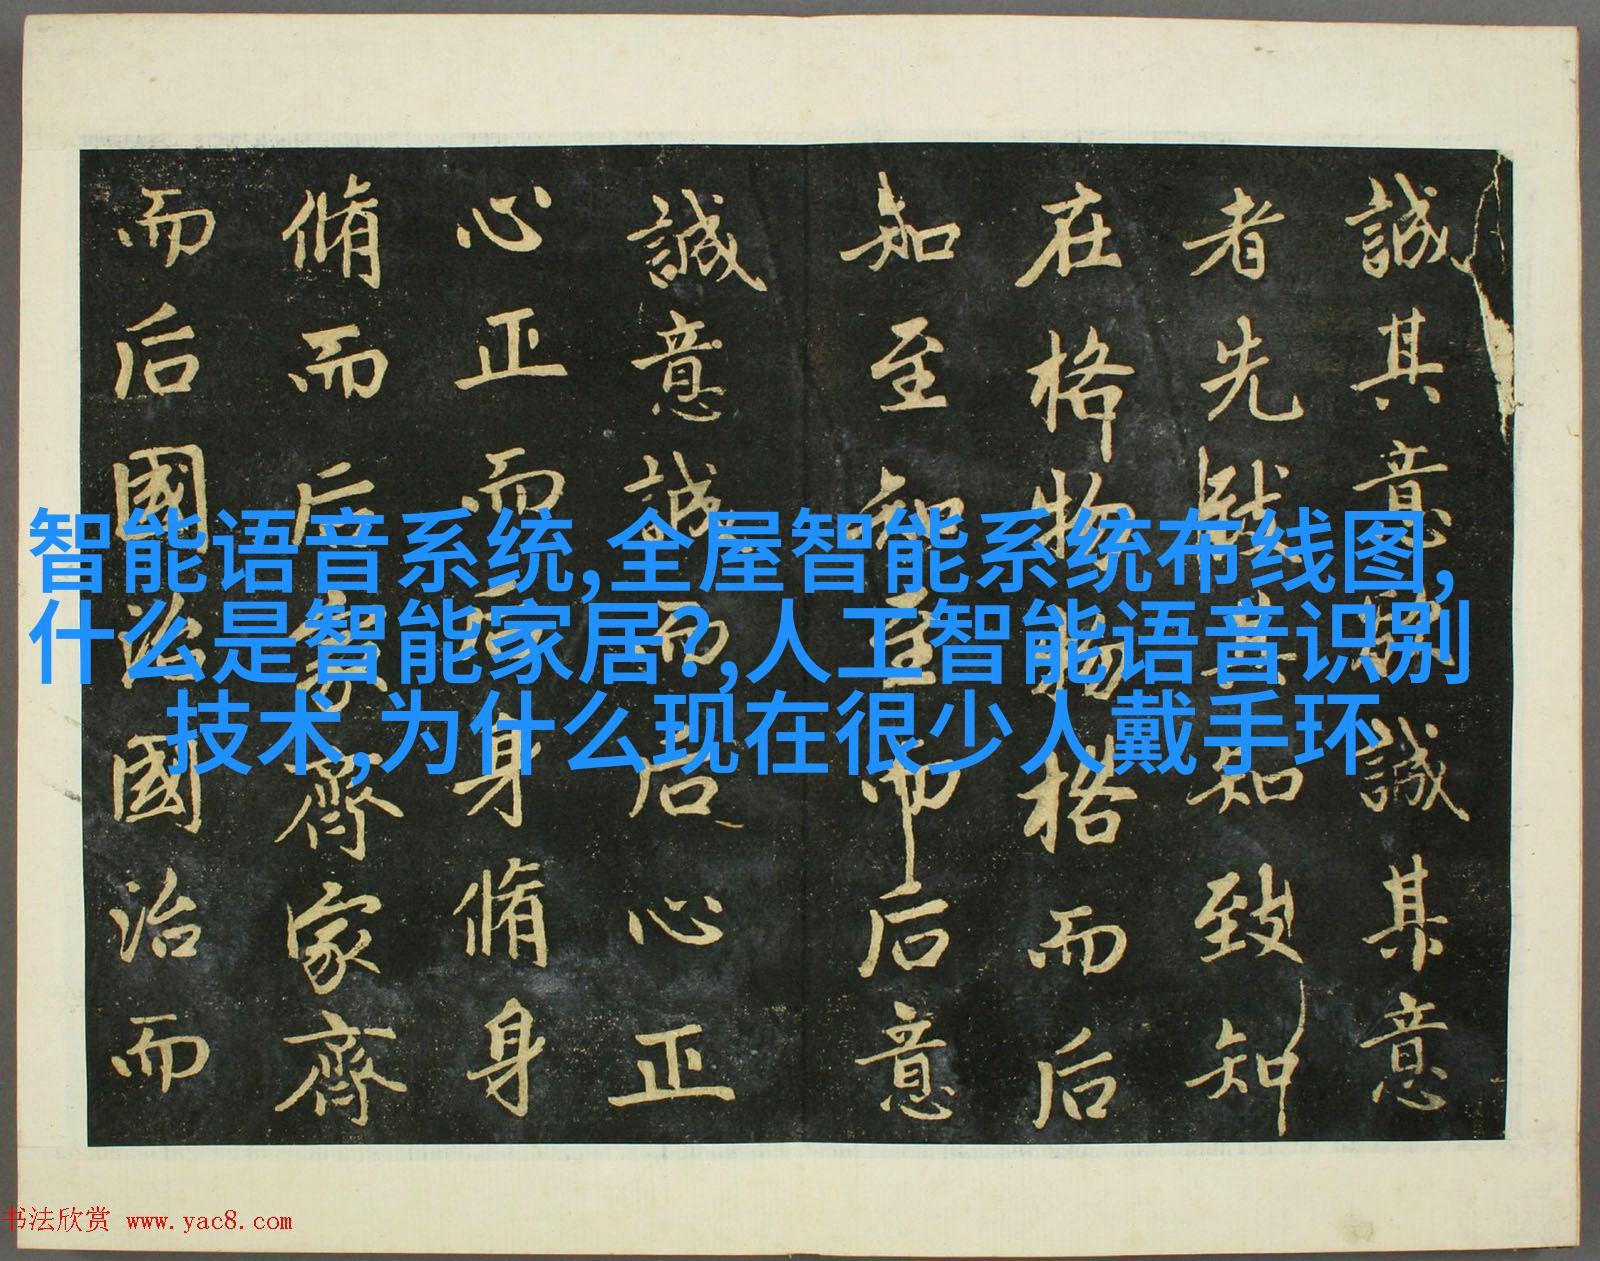 誠其意誠其意
者先致其知致知
在格物物格而后
知至知至而后意
誠意誠而后心正
心正而后身脩身
脩而后家齊家齊
而后國治國治而
智能语音系统,全屋智能系统布线图,
什么是智能家居?,人工智能语音识别
技术,为什么现在很少人戴手环
书法欣赏 www.yac8.com